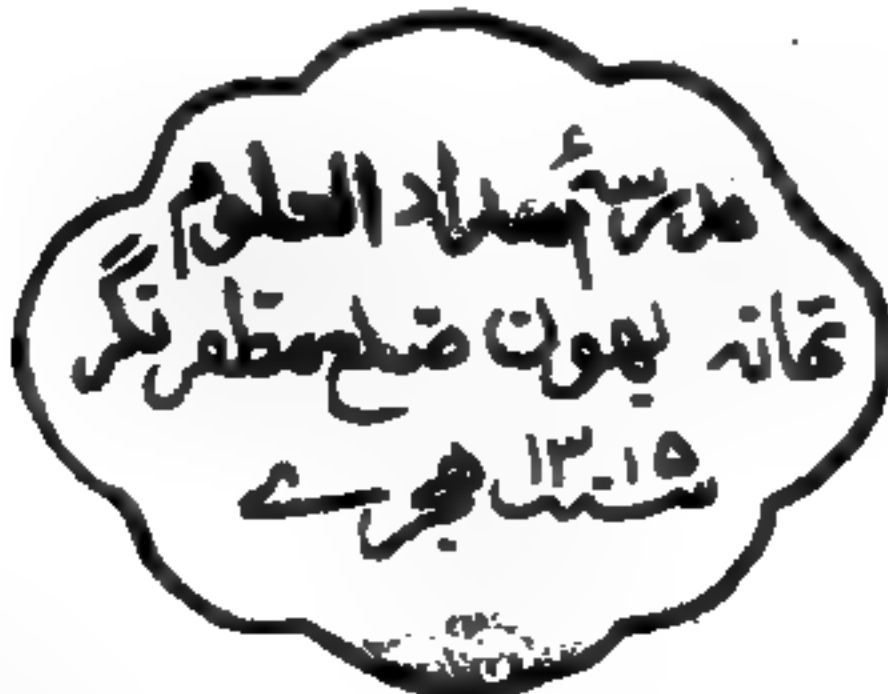 مدرسۂ امداد العلوم
تھانہ بھون ضلع مظفر نگر
سنہ ۱۳۱۵ ہجرے